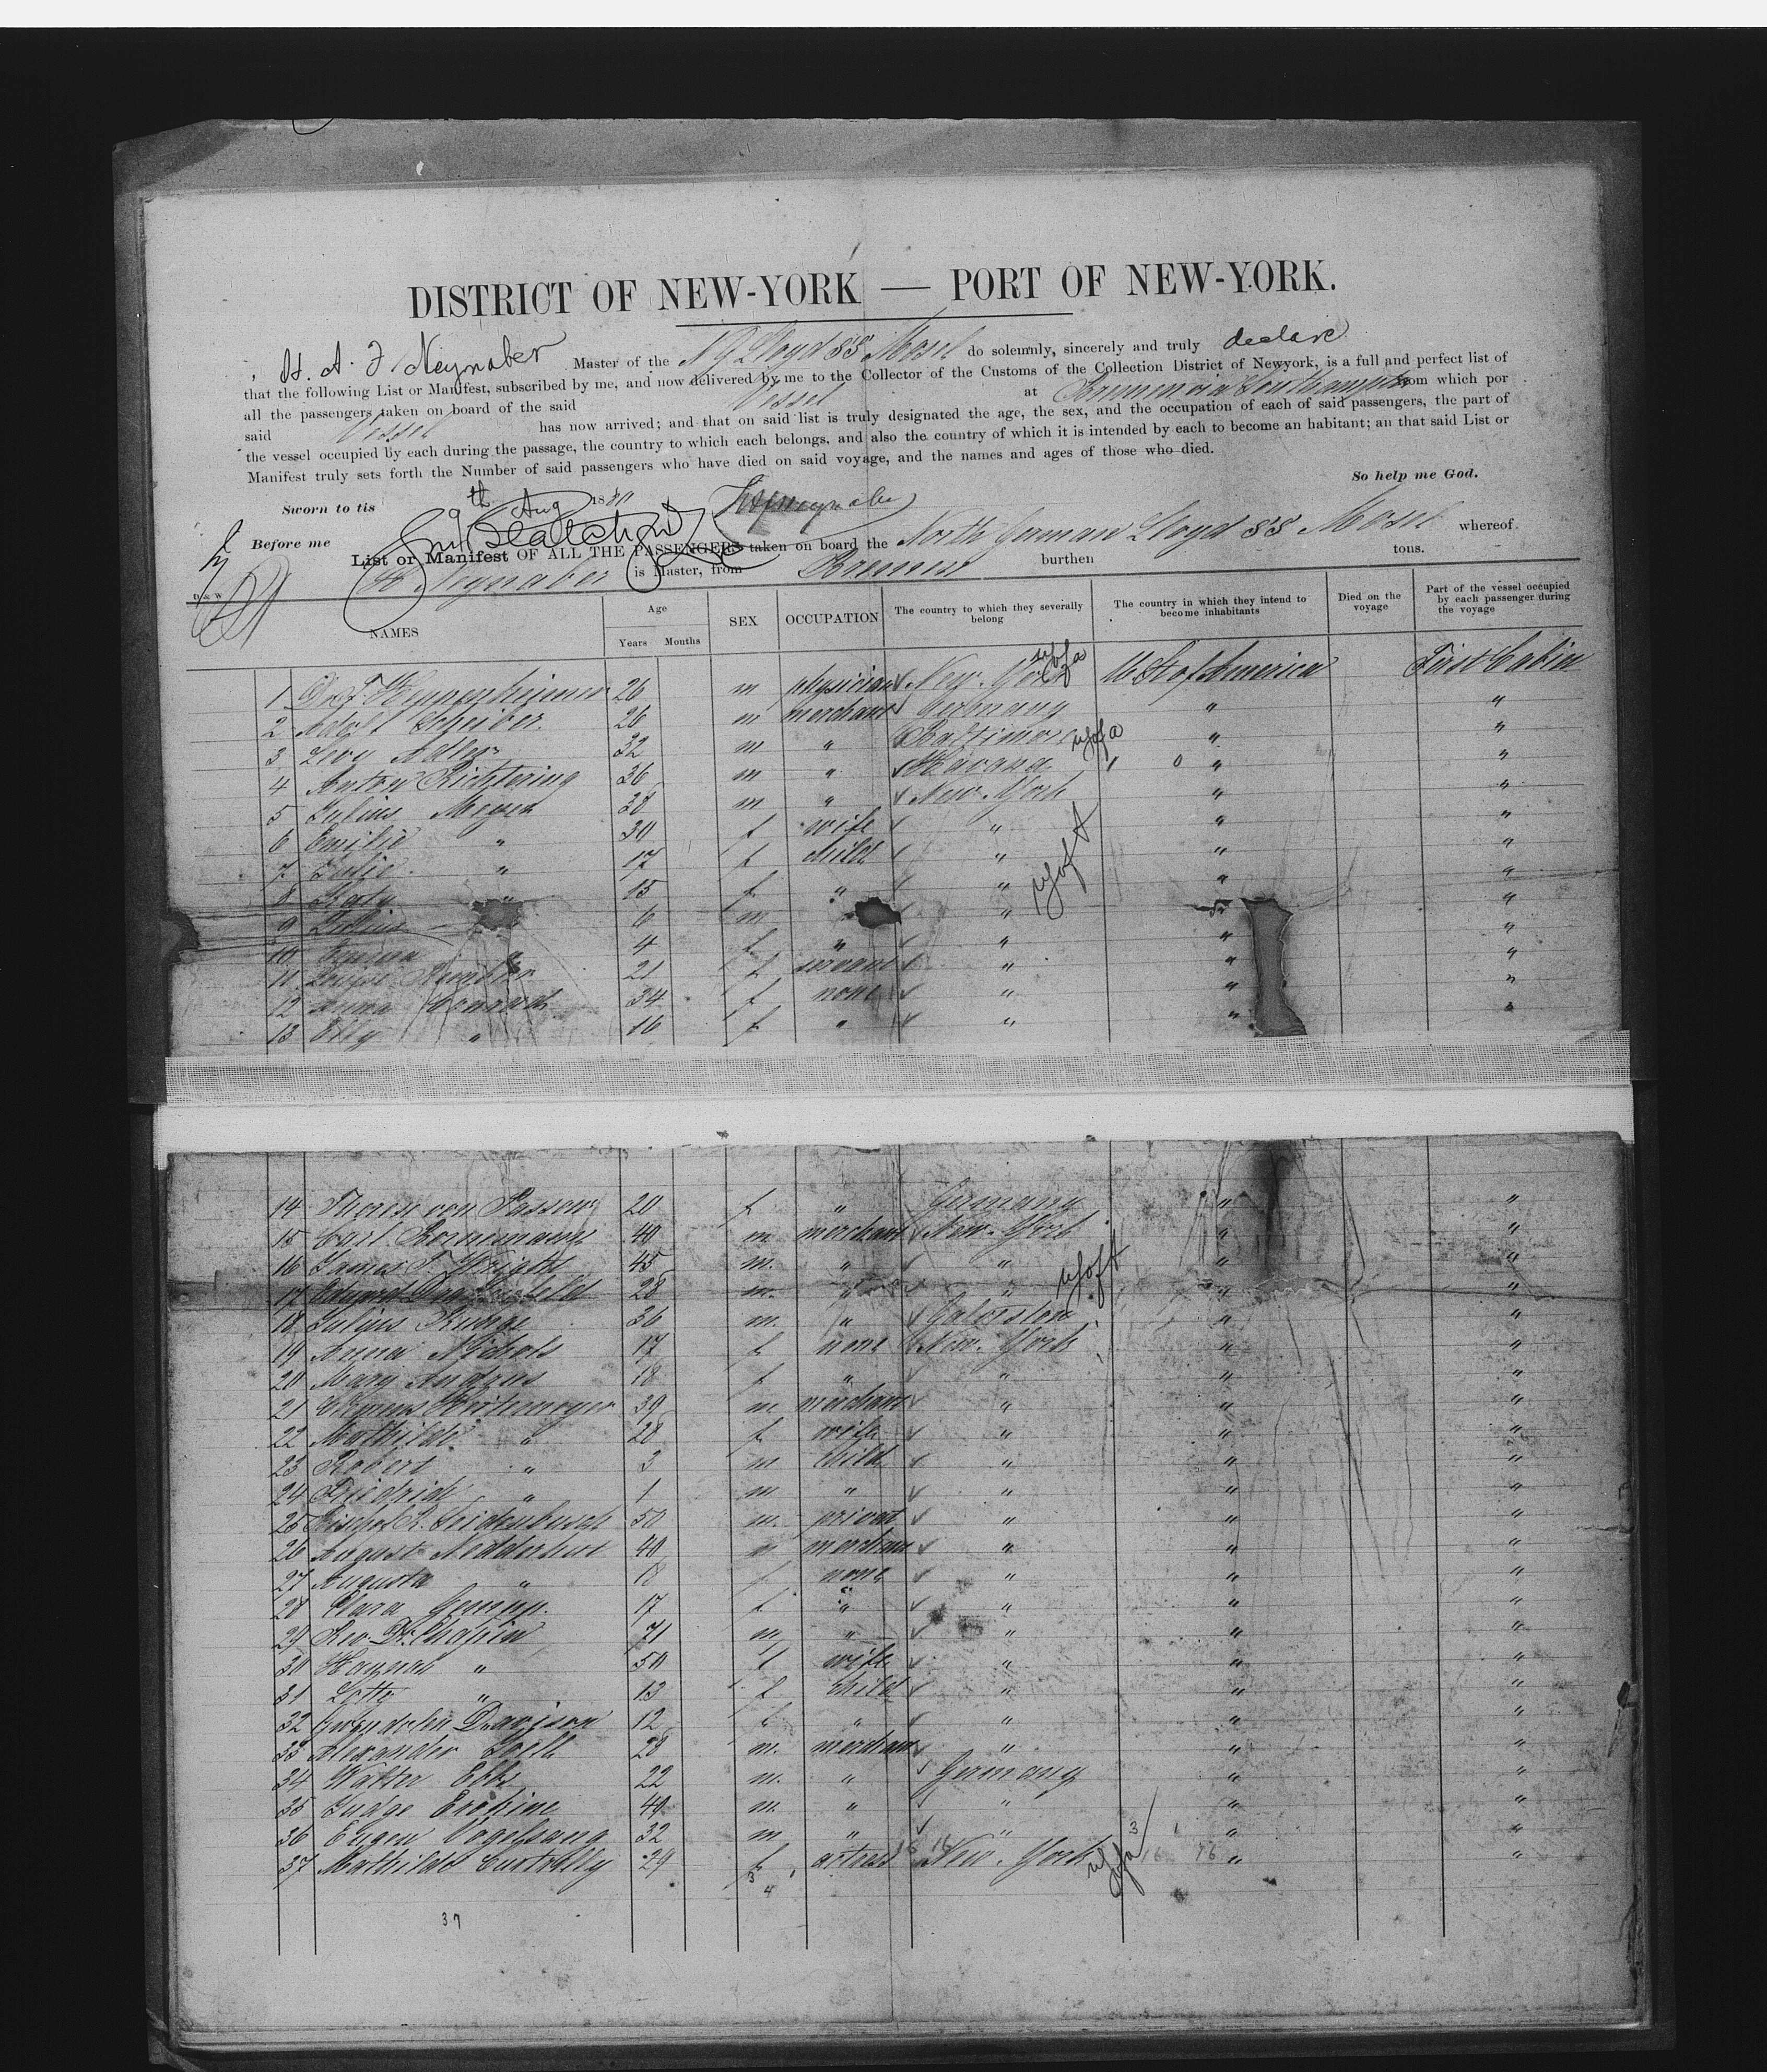 DISTRICT OF NEW-YORK — PORT OF NEW-YORK.
H. A. F Neynaber Master of the N G Lloyd SS Mosel do solemnly, sincerely and truly declare
that the following List or Manifest, subscribed by me, and now delivered by me to the Collector of the Customs of the Collection District of Newyork, is a full and perfect list of
all the passengers taken on board of the said Vessel at Bremen via Southampton from which por
said Vessel has now arrived; and that on said list is truly designated the age, the sex, and the occupation of each of said passengers, the part of
the vessel occupied by each during the passage, the country to which each belongs, and also the country of which it is intended by each to become an habitant; an that said List or
Manifest truly sets forth the Number of said passengers who have died on said voyage, and the names and ages of those who died.
So help me God.
Sworn to tis 9th Aug 1880
Before me
List or Manifest OF ALL THE PASSENGERS taken on board the North German Lloyd SS Mosel whereof
H Neynaber is Master, from Bremen burthen tons.
D & W
NAMES Age Years Months SEX OCCUPATION The country to which they severally belong The country in which they intend to become inhabitants Died on the voyage Part of the vessel occupied by each passenger during the voyage
1 26 m physician New-York U St of America First Cabin
2 Adolf Scheiber. 26 m merchant Germany " "
3 Levy Adler 32 m " Baltimore " "
4 Anton Richtering 36 m " Havana " "
5 Julius Meyer 38 m " New-York " "
6 Emilie " 30 f wife " " "
7 Julie " 17 f child " " "
8 Katy " 15 f " " " "
9 Julius 6 m " " "
10 Emma " 4 f " " " "
11 Louise 21 f servant " " "
12 Anna Conrad 34 f none " " "
13 Elly " 16 f " " " "
14 Therese von Passow 20 f " Germany " "
15 Carl Bornemann 40 m merchant New-York " "
16 James T. Wright 45 m. " " " "
17 28 m. " " " "
18 Julius Runge 36 m. " Galveston " "
19 Anna Nichols 17 f none New-York " "
20 Mary Andrus 18 f " " " "
21 39 m merchant " " "
22 Mathilde " 28 f wife " " "
23 Robert " 3 m child " " "
24 Friedrich " 1 m " " " "
25 Bischof R. Seidenbusch 50 m. privat " " "
26 August Nedderhut 40 m merchant " " "
27 Augusta " 18 f none " " "
28 Clara 17 f " " " "
29 Rev. Dr. Chapin 71 m " " " "
30 Hannah " 50 f wife " " "
31 Lotty " 13 f child " " "
32 Gwyndolin Davison 12 f " " " "
33 Alexander 28 m. merchant " " "
34 Walter Ebbs 22 m. " Germany " "
35 Judge Erskine 49 m. " " " "
36 Eugen Vogelsang 32 m " " " "
37 Mathilde Cottrelly 29 f actress New-York " "
37